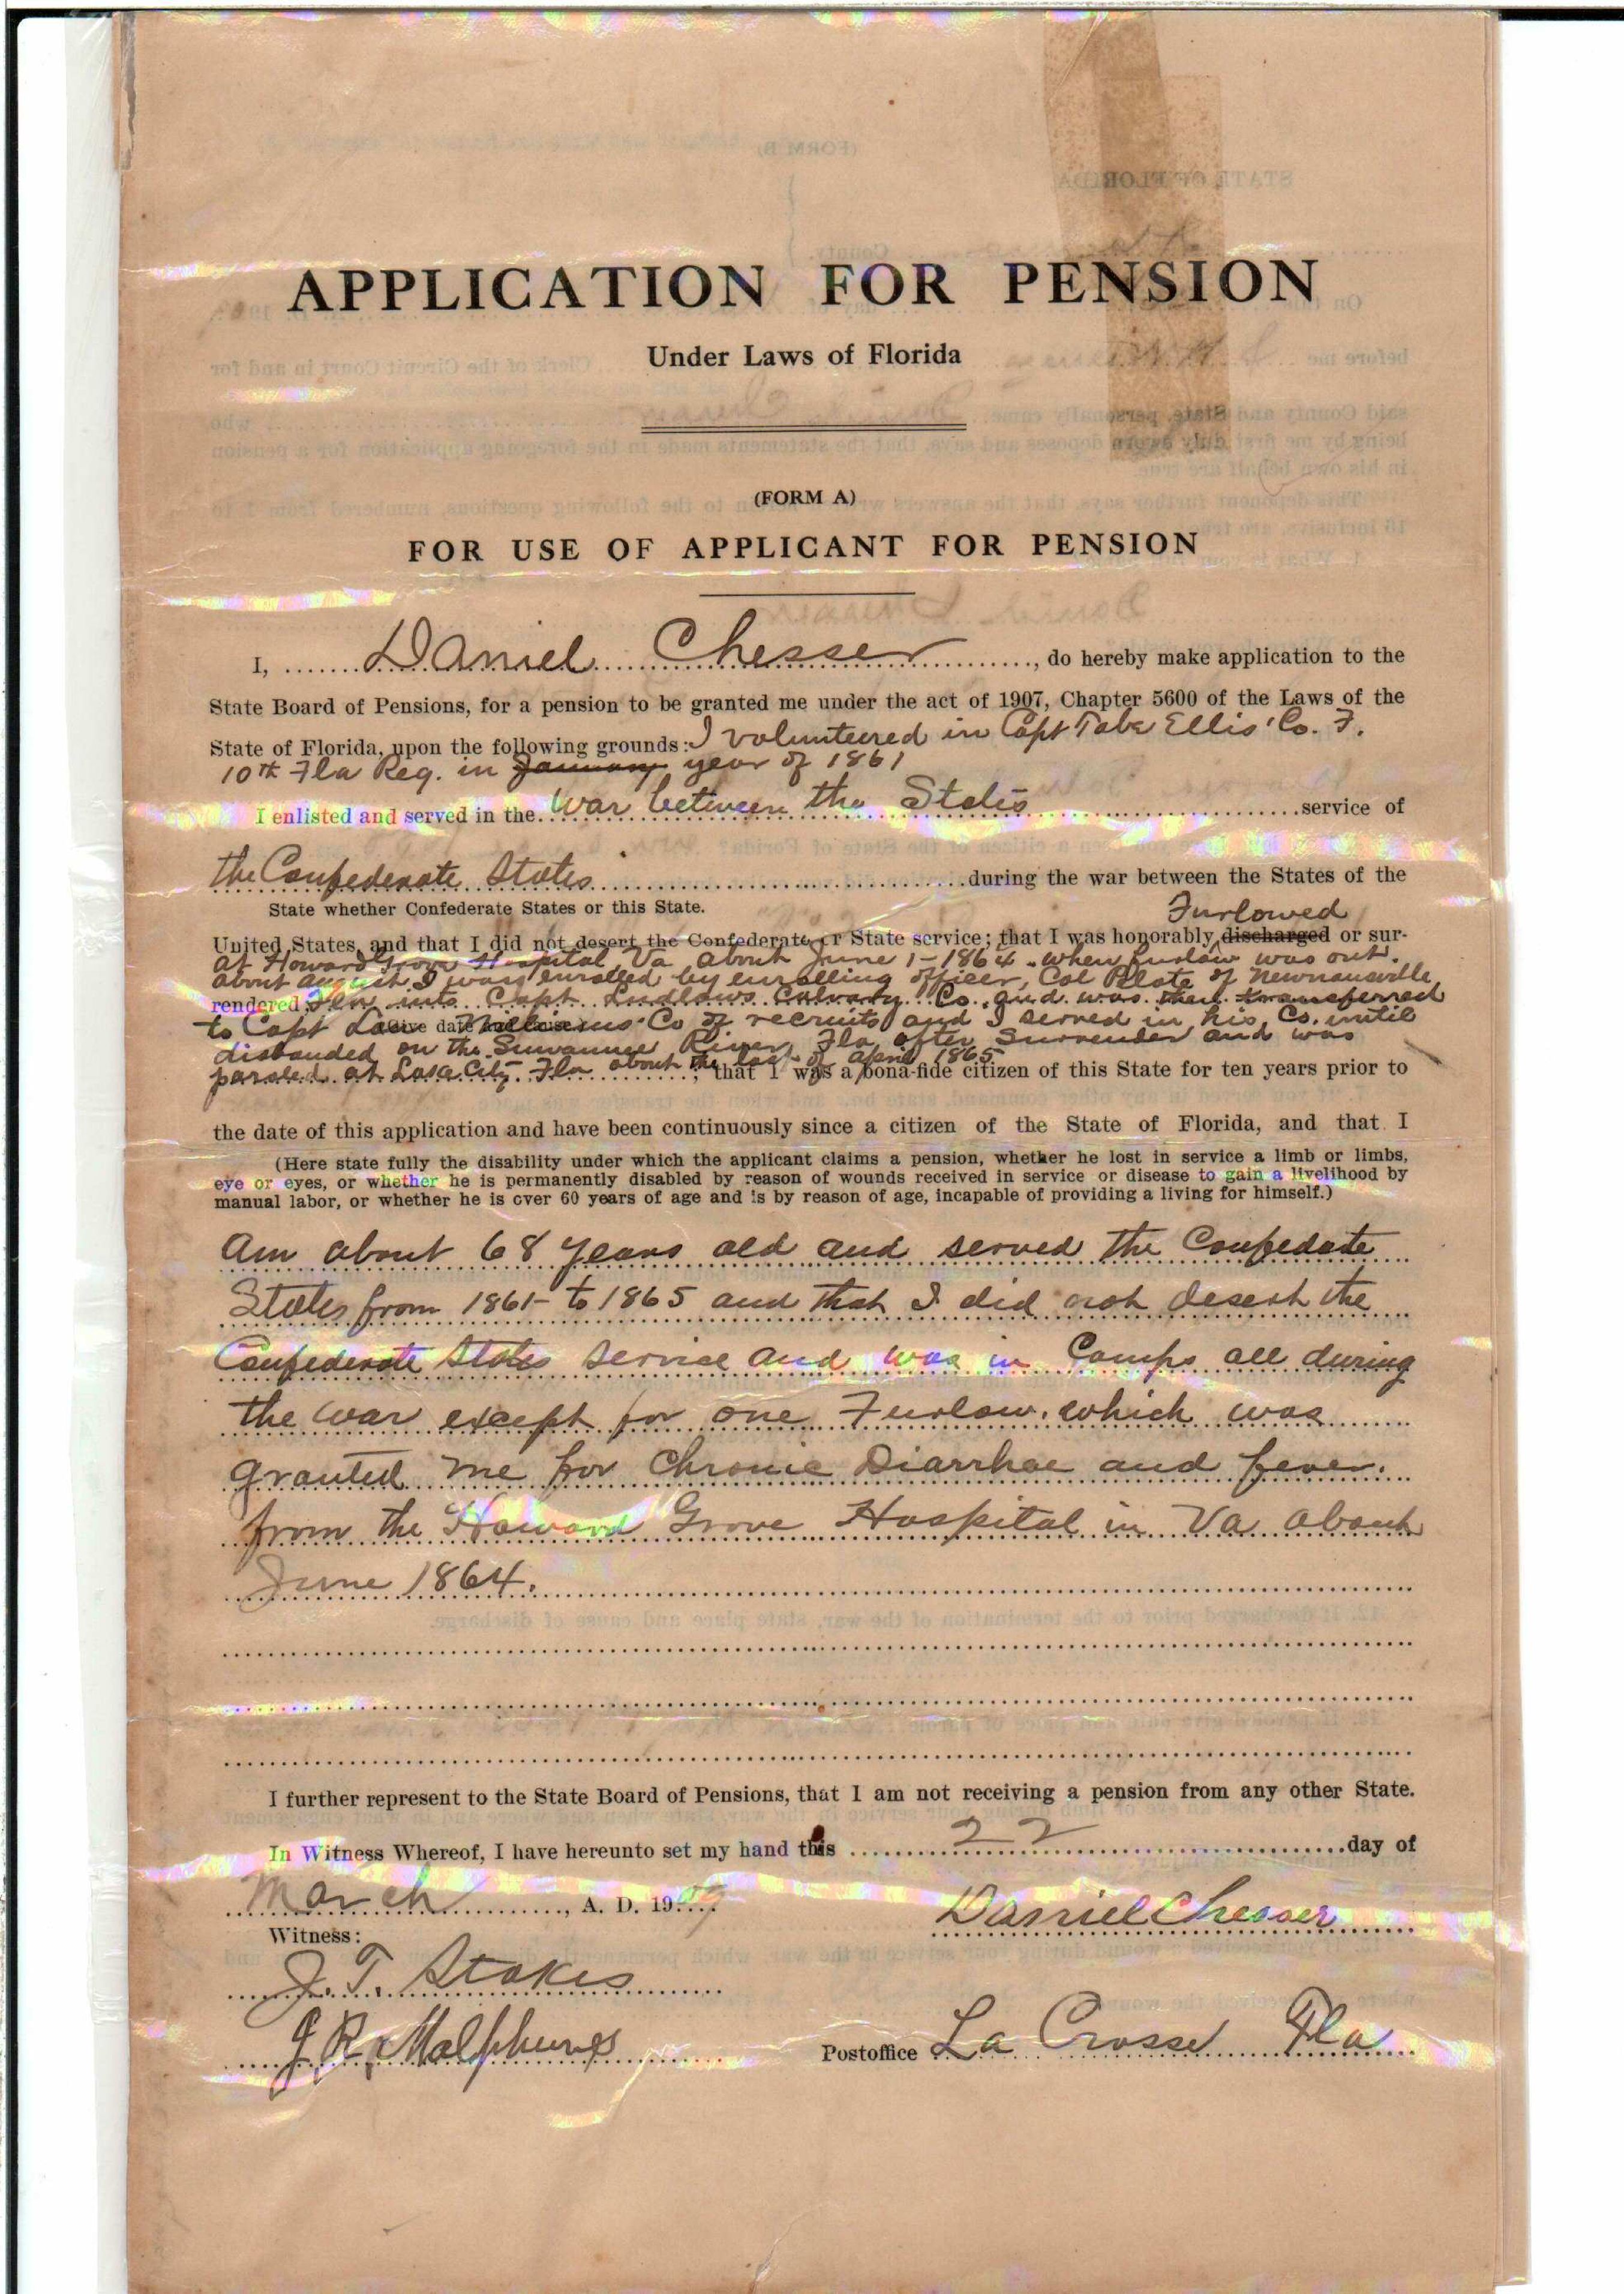 APPLICATION FOR PENSION
Under Laws of Florida
(FORM A)
FOR USE OF APPLICANT FOR PENSION
I, Daniel Chesser, do hereby make application to the
State Board of Pensions, for a pension to be granted me under the act of 1907, Chapter 5600 of the Laws of the
State of Florida, upon the following grounds: I volunteered in Capt Tabe Ellis' Co. F.
10th Fla Reg. in January year of 1861
I enlisted and served in the War between the States service of
the Confederate States during the war between the States of the
State whether Confederate States or this State.
Furlowed
United States, and that I did not desert the Confederate or State service; that I was honorably discharged or sur-
at Howard Hospital, Va about June 1-1864. when furlow was out.
about I was enrolled by enrolling officer, Col of Newnansville
rendered Fla into Capt Ludlows Calvary Co. and was then transferred
(Give date and cause)
to Capt Williams Co of recruits and I served in his Co. until
disbanded on the Suwannee River, Fla after Surrender and was
paroled at City Fla about the last of april 1865
; that I was a bona-fide citizen of this State for ten years prior to
the date of this application and have been continuously since a citizen of the State of Florida, and that I
(Here state fully the disability under which the applicant claims a pension, whether he lost in service a limb or limbs,
eye or eyes, or whether he is permanently disabled by reason of wounds received in service or disease to gain a livelihood by
manual labor, or whether he is over 60 years of age and is by reason of age, incapable of providing a living for himself.)
am about 68 years old and served the Confedate
States from 1861- to 1865 and that I did not desert the
Confederate States service and was in Camps all during
the war except for one Furlow. which was
granted me for Chronic Diarrhae and fever.
from the Howard Grove Hospital in Va about
June 1864.
I further represent to the State Board of Pensions, that I am not receiving a pension from any other State.
In Witness Whereof, I have hereunto set my hand this 22 day of
March, A. D. 1909
Daniel Chesser
Witness:
J. T. Stokes
J R Malphurs
Postoffice La Crosse Fla